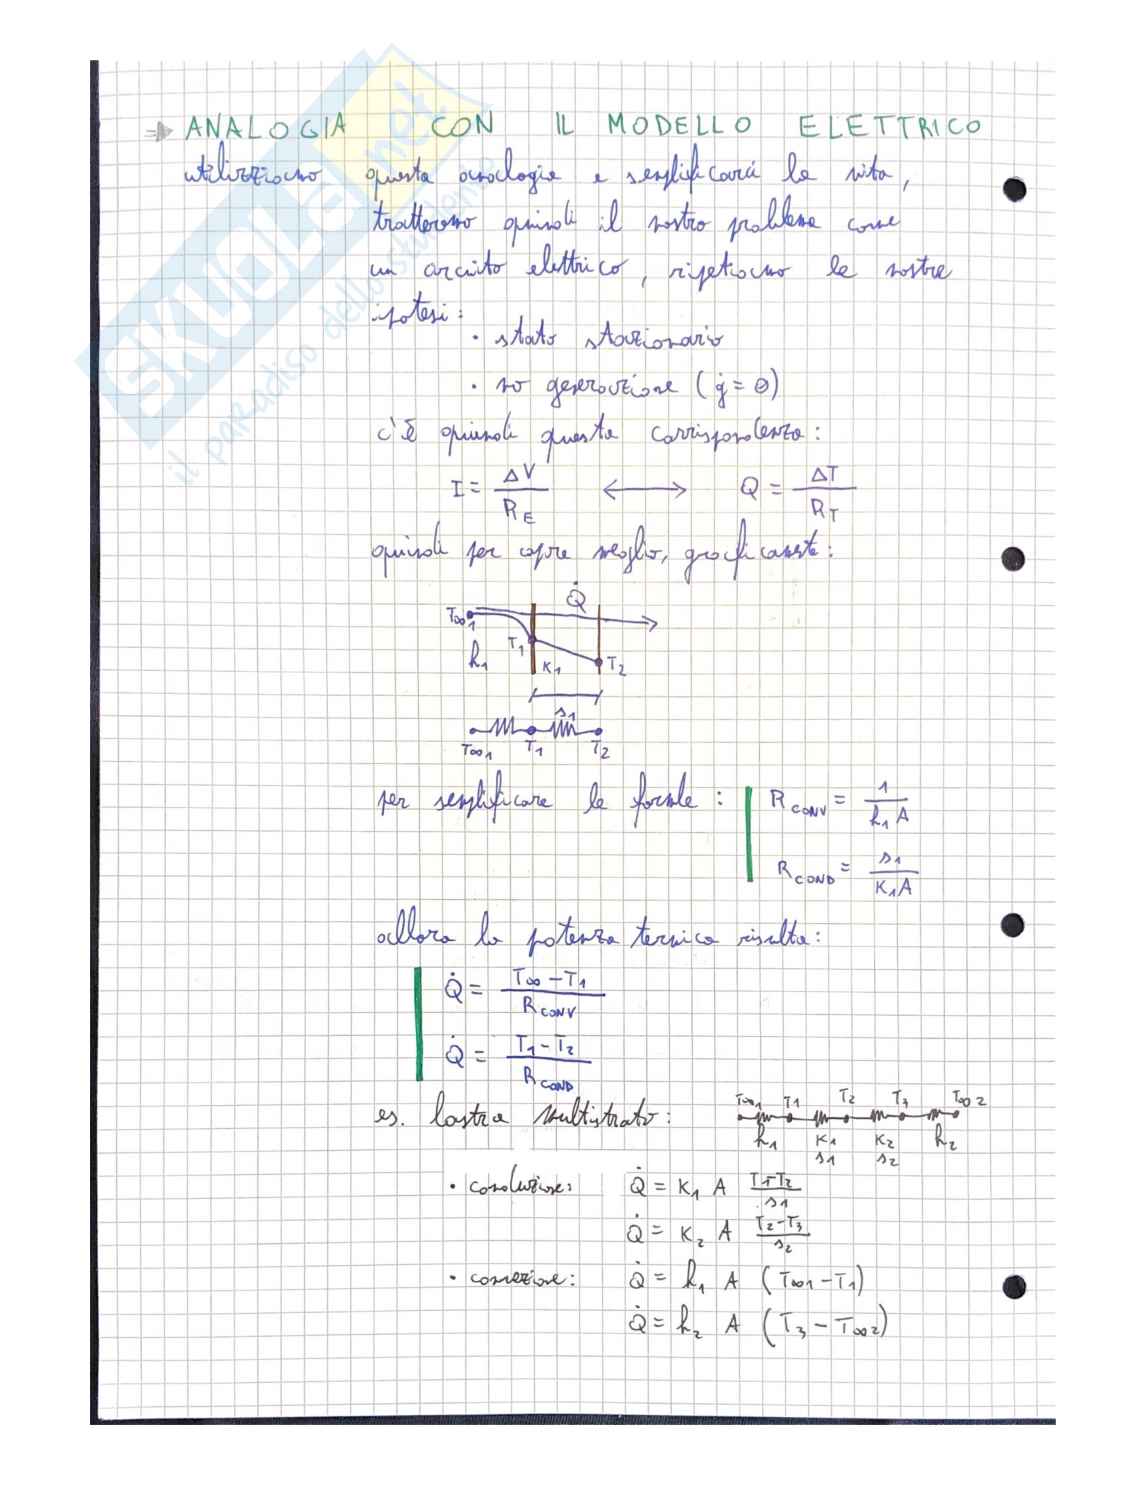 ⇒ ANALOGIA CON IL MODELLO ELETTRICO
utilizziamo questa analogia e semplificarci la vita,
tratteremo quindi il nostro problema come
un circuito elettrico, ripetiamo le nostre
ipotesi:
• stato stazionario
• no generazione (q̇ = 0)
c'è quindi questa corrispondenza:
I = ΔV / R_E ⟷ Q = ΔT / R_T
quindi per capire meglio, graficamente:
Q̇
T∞1
T1
h1
K1
T2
s1
T∞1 T1 T2
per semplificare le formule : R_CONV = 1 / h1 A
R_COND = s1 / K1 A
allora la potenza termica risulta:
Q̇ = T∞ - T1 / R_CONV
Q̇ = T1 - T2 / R_COND
es. lastra multistrato:
T∞1 T1 T2 T3 T∞2
h1 K1 K2 h2
s1 s2
• conduzione: Q̇ = K1 A T1-T2 / s1
Q̇ = K2 A T2-T3 / s2
• convezione: Q̇ = h1 A (T∞1 - T1)
Q̇ = h2 A (T3 - T∞2)
SKUOLA.net
il paradiso dello studente